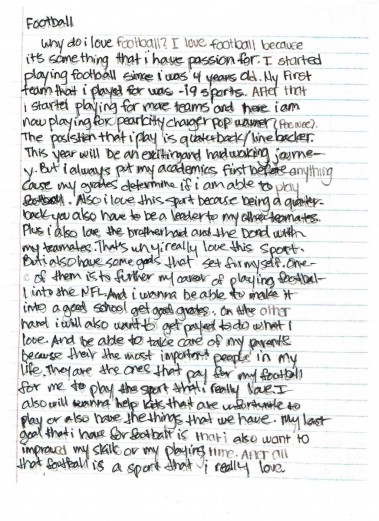 Football
why do i love football? I love football because
it's something that i have passion for. I started
playing football since i was 4 years old. My First
team that i played for was -19 sports. After that
i startel playing for more teams and here i am
now playing for pearlcity charger pop warner (Pee wee).
The posistion that i play is quaterback/linebacker.
This year will be an exciting and hard working journe-
y. But i always put my academics first before anything
cause my grades determine if i am able to play
football. Also i love this sport because being a quater-
back you also have to be a leader to my other teamates.
Plus i also love the brotherhood and the bond with
my teamates. Thats why i really love this sport.
But i also have some goals that set for myself. One
of them is to further my career of playing football-
l into the NFL. And i wanna be able to make it
into a good school get good grades. On the other
hand i will also want to get payed to do what I
love. And be able to take care of my parents
because their the most important people in my
life. They are the ones that pay for my football
for me to play the sport that i really love. I
also will wanna help kids that are unfortunate to
play or also have the things that we have. My last
goal that i have for football is that i also want to
improve my skills or my playing time. After all
that football is a sport that i really love.